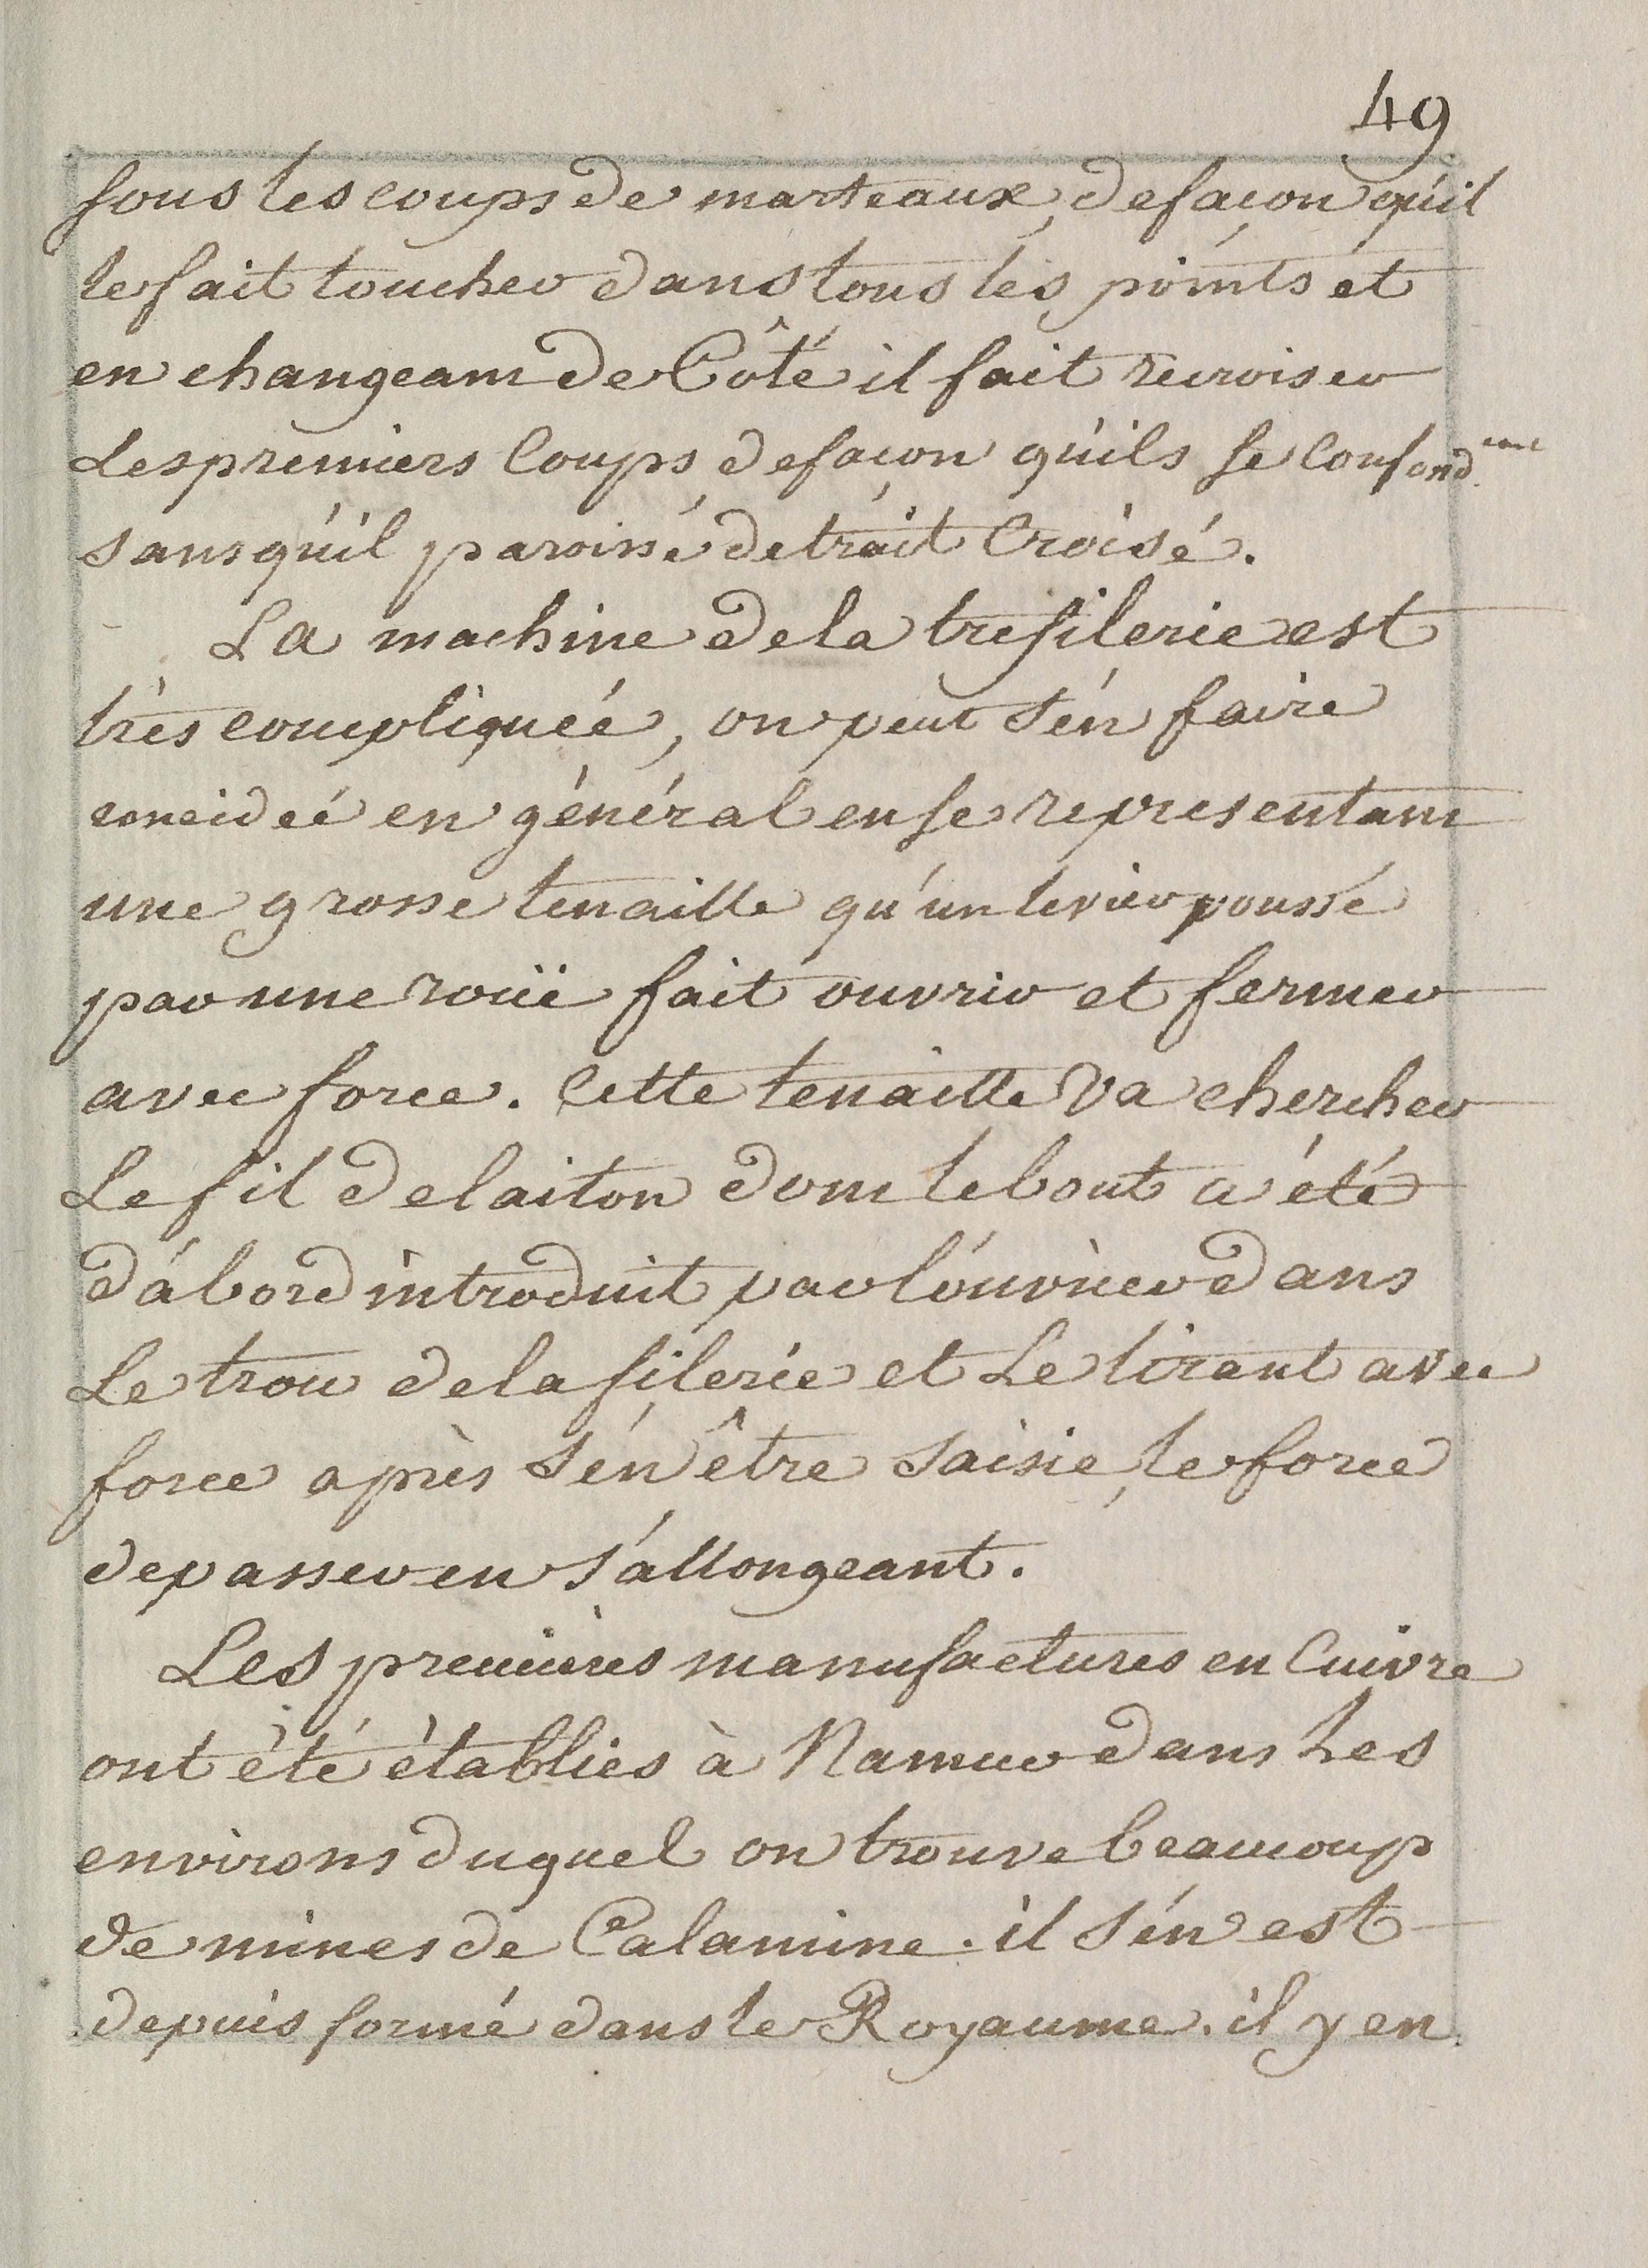 49
sous les coups de marteaux, de façon qu'il
le fait toucher dans tous les points et
en changeant de Côté il fait recroiser
Les premiers Coups de façon qu'ils se Confond.ent
sans qu'il paroissé de trait Croisé.
La machine de la trefilerie est
très compliqueé, on peut s'én faire
une ideé en général en se representant
une grosse tenaille qu'un levier poussé
par une roüe fait ouvrir et fermer
avec force. Cette tenaille va chercher
Le fil de laiton dont le bout a été
d'abord introduit par l'ouvrier dans
Le trou de la filerie et Le tirant avec
force après s'én être saisie, le force
de passer en s'allongeant.
Les premières manufactures en Cuivre
ont été établies à Namur dans Les
environs duquel on trouve beaucoup
de mines de Calamine. il s'én est
depuis formé dans le Royaume. il y en